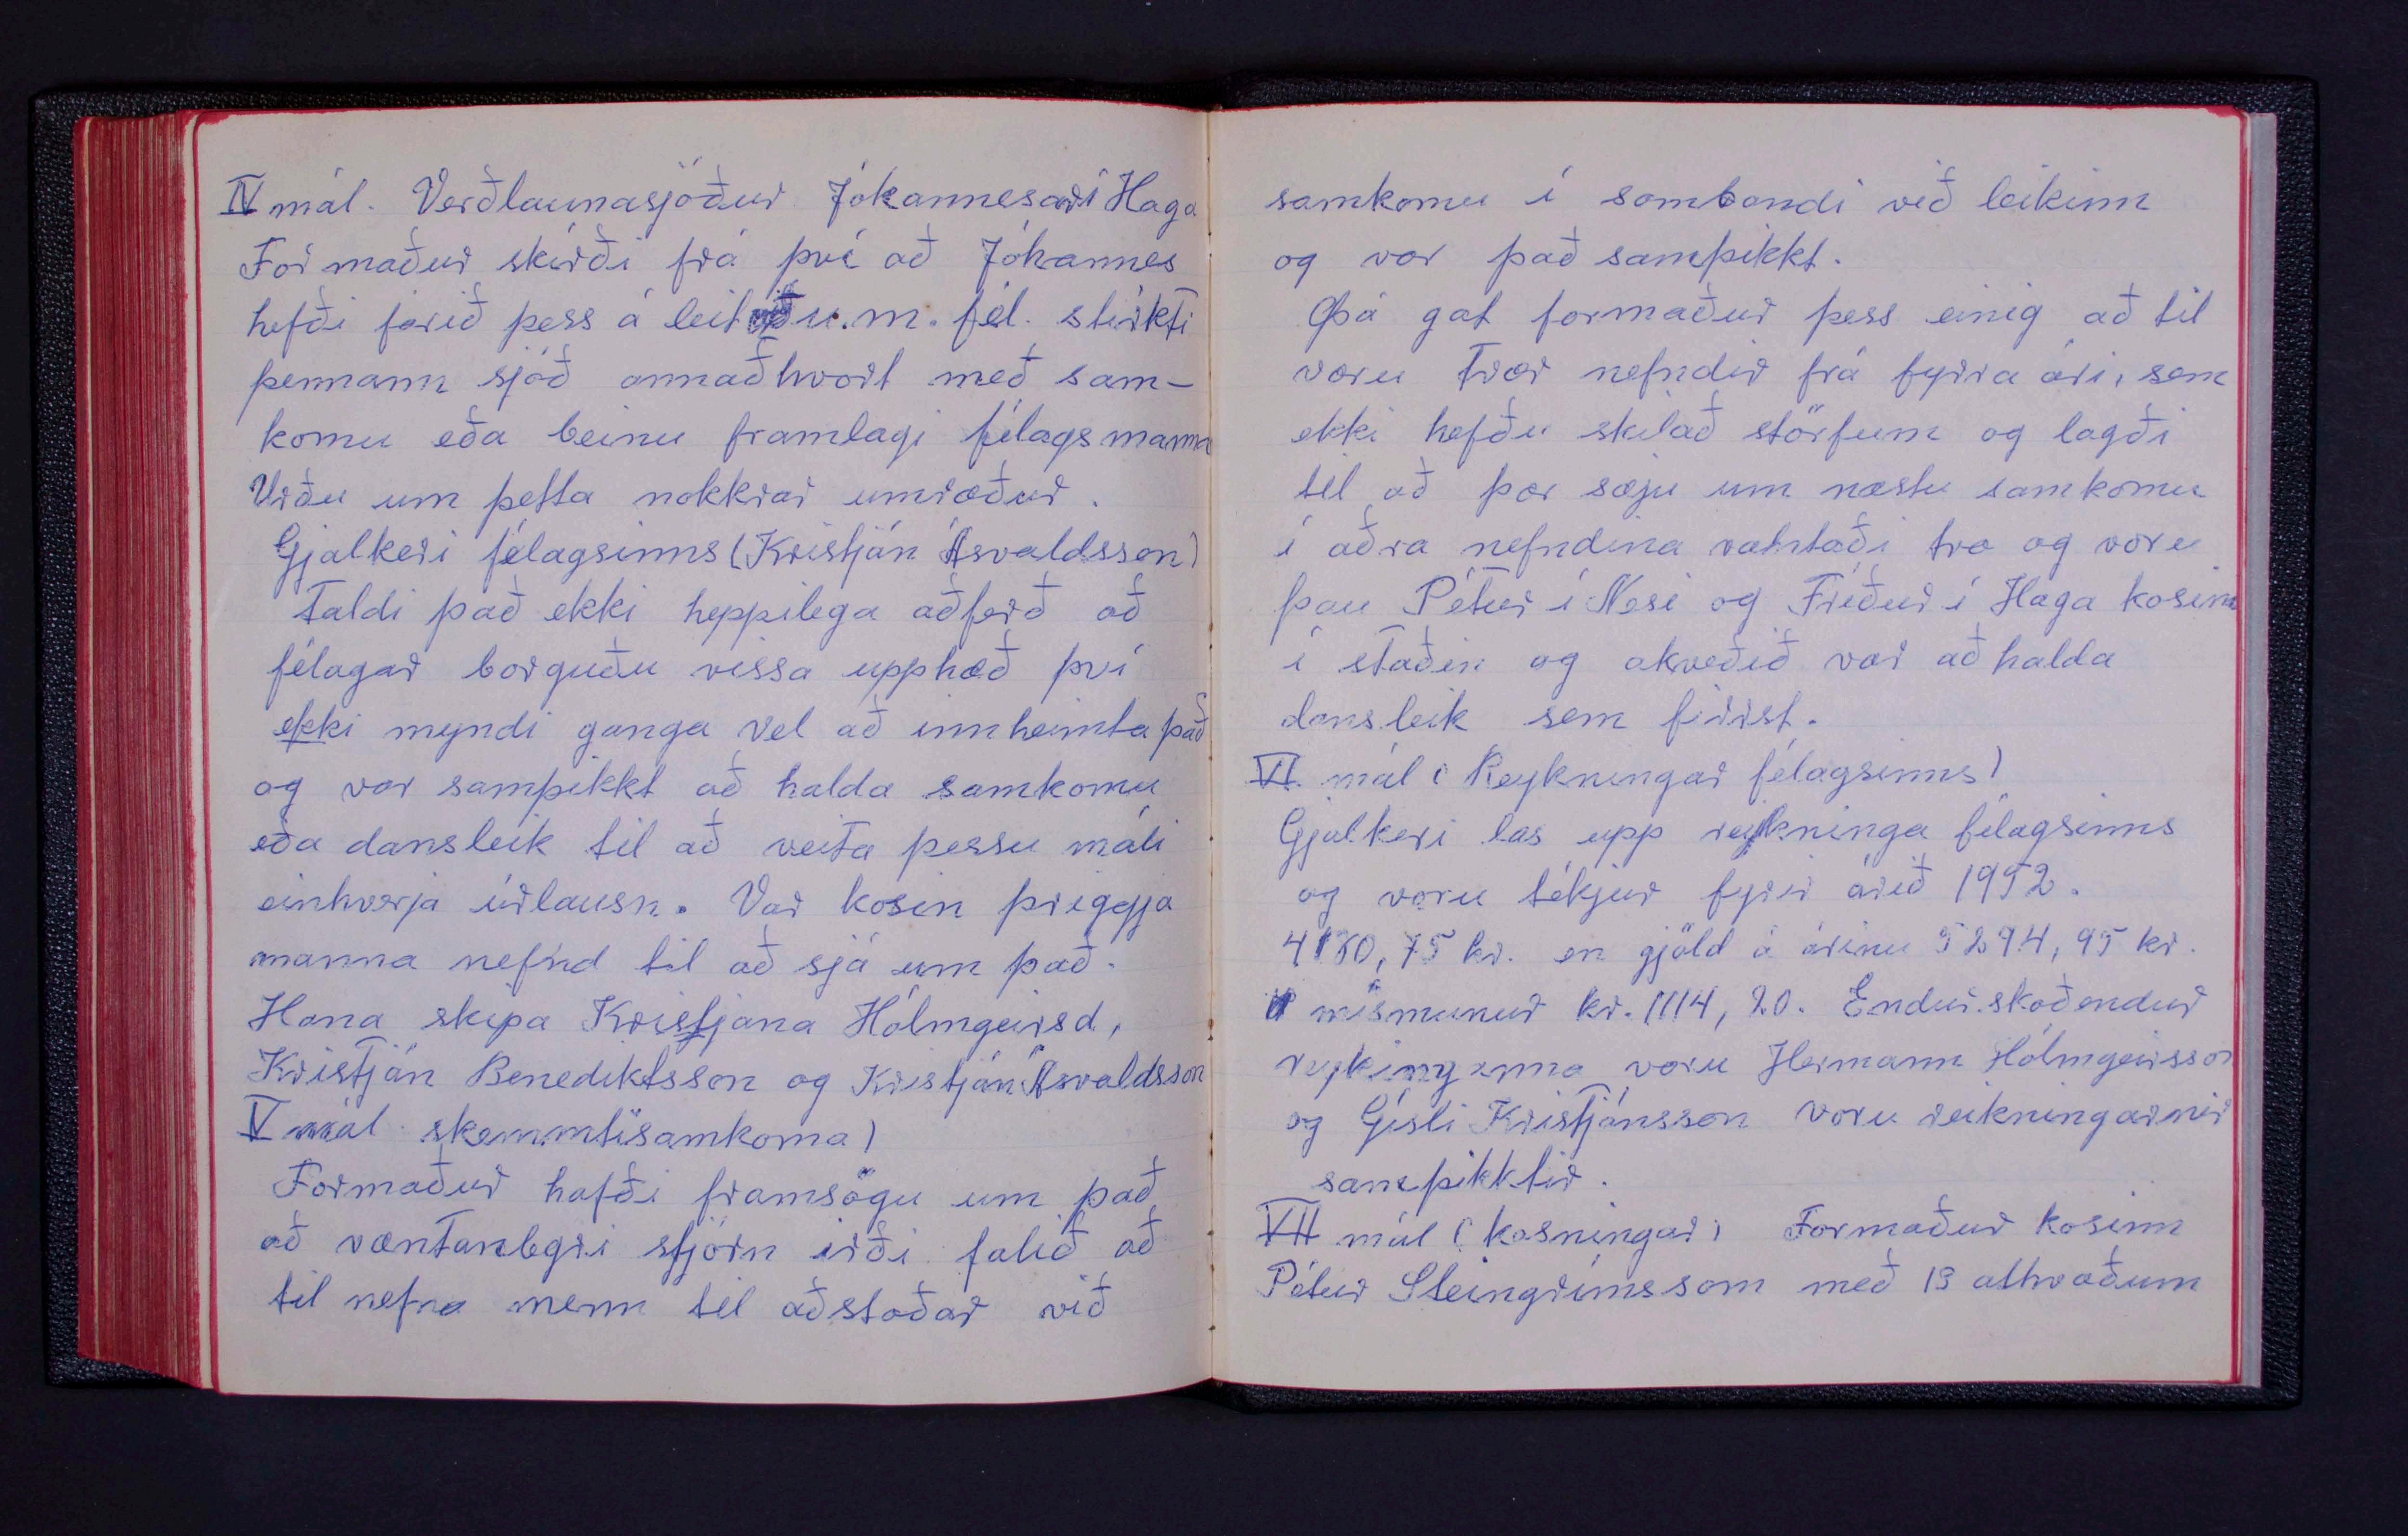 IV mál. Verðlaunasjóður Jóhannesar í Haga
Formaður skírði frá því að Jóhannes
hefði farið þess á leit við u.m. fél. stirkti
þennann sjóð annaðhvort með sam-
komu eða beinu framlagi félagsmanna
Urðu um þetta nokkrar umræður.
Gjalkeri félagsinns (Kristján Ásvaldsson)
Taldi það ekki heppilega aðferð að
félagar borguðu vissa upphæð því
ekki myndi ganga vel að innheimta það
og var samþikkt að halda samkomu
eða dansleik til að veita þessu máli
einhverja úrlausn. Var kosin þriggja
manna nefnd til að sjá um það.
Hana skipa Kristjana Hólmgeirsd,
Kristján Benediktsson og Kristján Ásvaldsson
V mál skemmtisamkoma)
Formaður hafði framsögu um það
að væntanlegri stjórn irði falið að
til nefna menn til aðstoðar við
samkomu í sambandi við leikinn
og var það samþikkt.
Þá gat formaður þess einig að til
væru Tvær nefndir frá fyrra ári, sem
ekki hefðu skilað störfum og lagði
til að þær sæju um næstu samkomu
í aðra nefndina vahntaði tvo og voru
þau Pétur í Nesi og Fríður í Haga kosinn
í staðin og akveðið var að halda
dansleik sem firrst.
VI mál (Reykningar félagsinns)
Gjalkeri las upp reykninga félagsinns
og voru tékjur fyrir árið 1952.
4180,75 kr. en gjöld á árinu 5294,95 kr.
mismunur kr. 1114,20. Endurskoðendur
reykinganna voru Hermann Hólmgeirsson
og Gísli Kristjánsson voru reikningarnir
samþikktir.
VII mál (kosningar) Formaður kosinn
Pétur Steingrímssom með 13 athvæðum